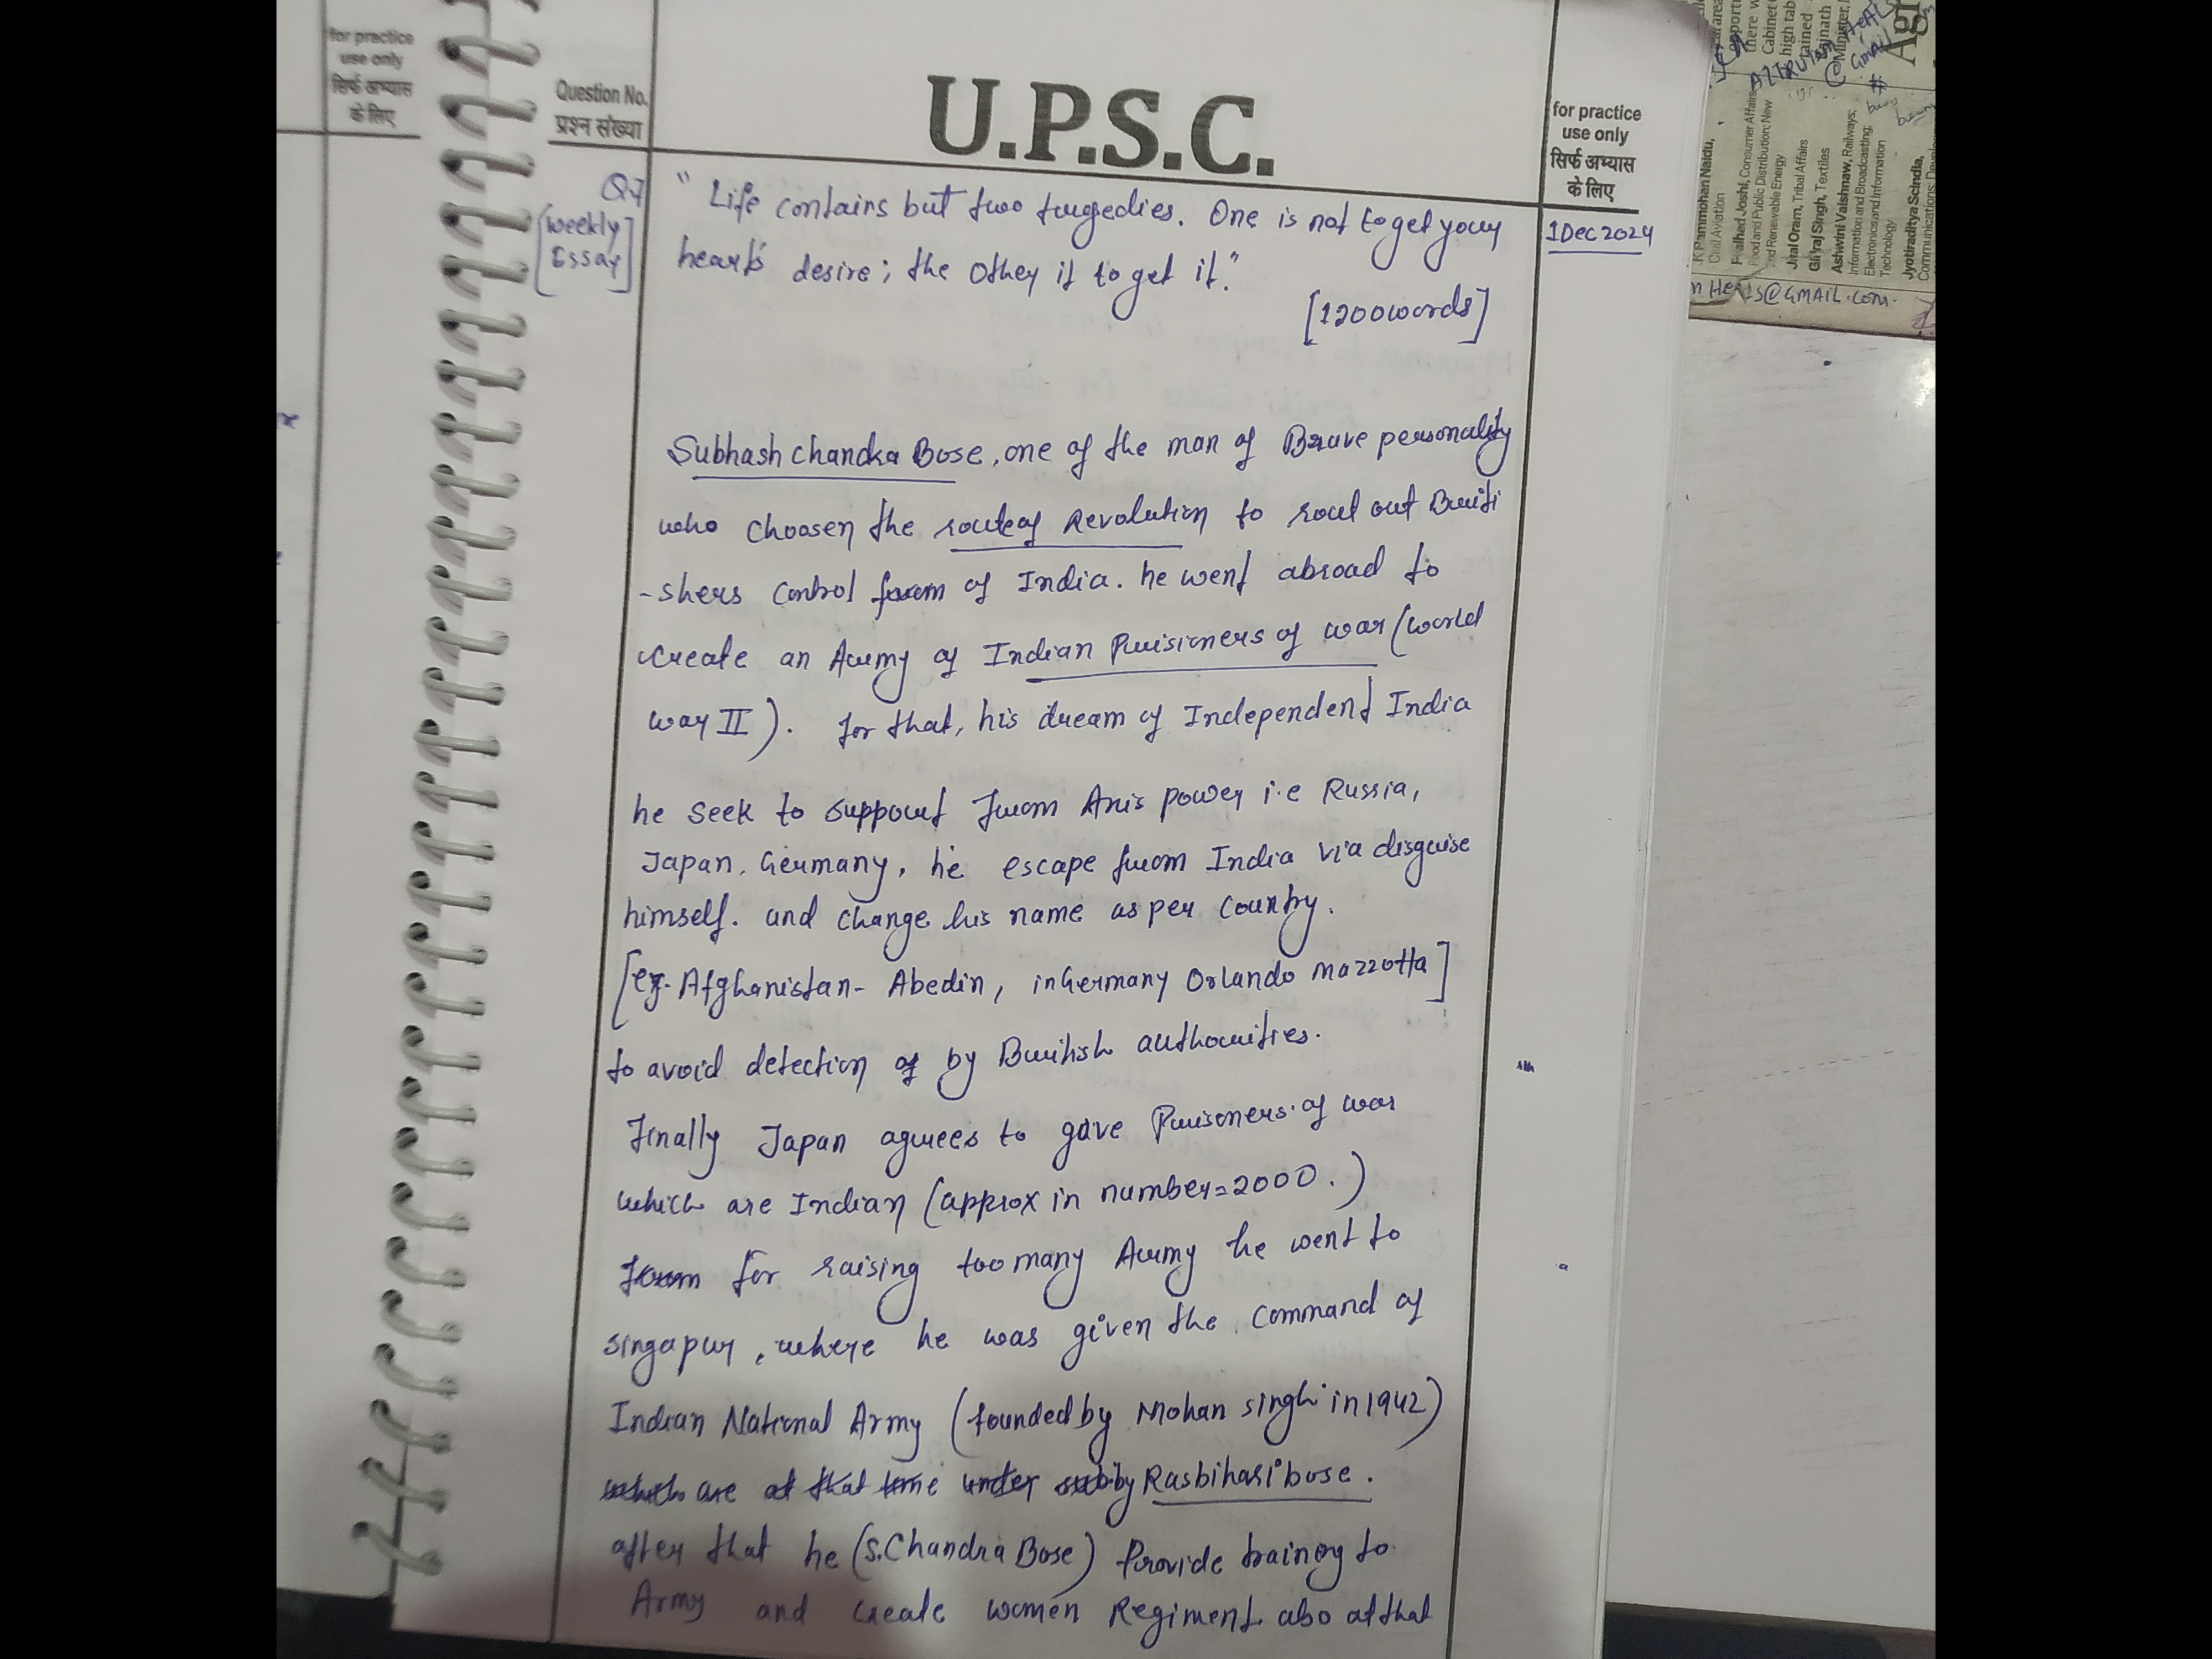 for practice
use only
सिर्फ अभ्यास
के लिए
Question No.
प्रश्न संख्या
U.P.S.C.
for practice
use only
सिर्फ अभ्यास
के लिए
Q7
[Weekly
Essay]
1 Dec 2024
" Life contains but two turgedies. One is not to get your
heart's desire; the Other it to get it."
[1200 words]
Subhash Chandra Bose, one of the man of Brave personality
who choosen the route of Revolution to rout out Briti
-shers control from of India. he went abroad to
create an Army of Indian Prisioners of war (world
war II). for that, his dream of Independent India
he seek to support from Axis power i.e Russia,
Japan, Germany, he escape from India via disguise
himself. and change his name as per country.
[eg. Afghanistan- Abedin, in Germany Orlando Mazzotta]
to avoid detection of by British authorities.
finally Japan agrees to gave Prisoners of war
which are Indian (approx in number=2000.)
from for raising too many Army he went to
singapur, where he was given the command of
Indian National Army (founded by Mohan singh in 1942)
which are at that time under sub by Rasbihari bose.
after that he (S.Chandra Bose) Provide trainey to
Army and create women Regiment also at that
K Rammohan Naidu,
Civil Aviation
Pralhad Joshi, Consumer Affairs,
Food and Public Distribution; New
and Renewable Energy
Jual Oram, Tribal Affairs
Giriraj Singh, Textiles
Ashwini Vaishnaw, Railways;
Information and Broadcasting;
Electronics and Information
Technology
Jyotiraditya Scindia,
Communications;
@GMAIL.COM.